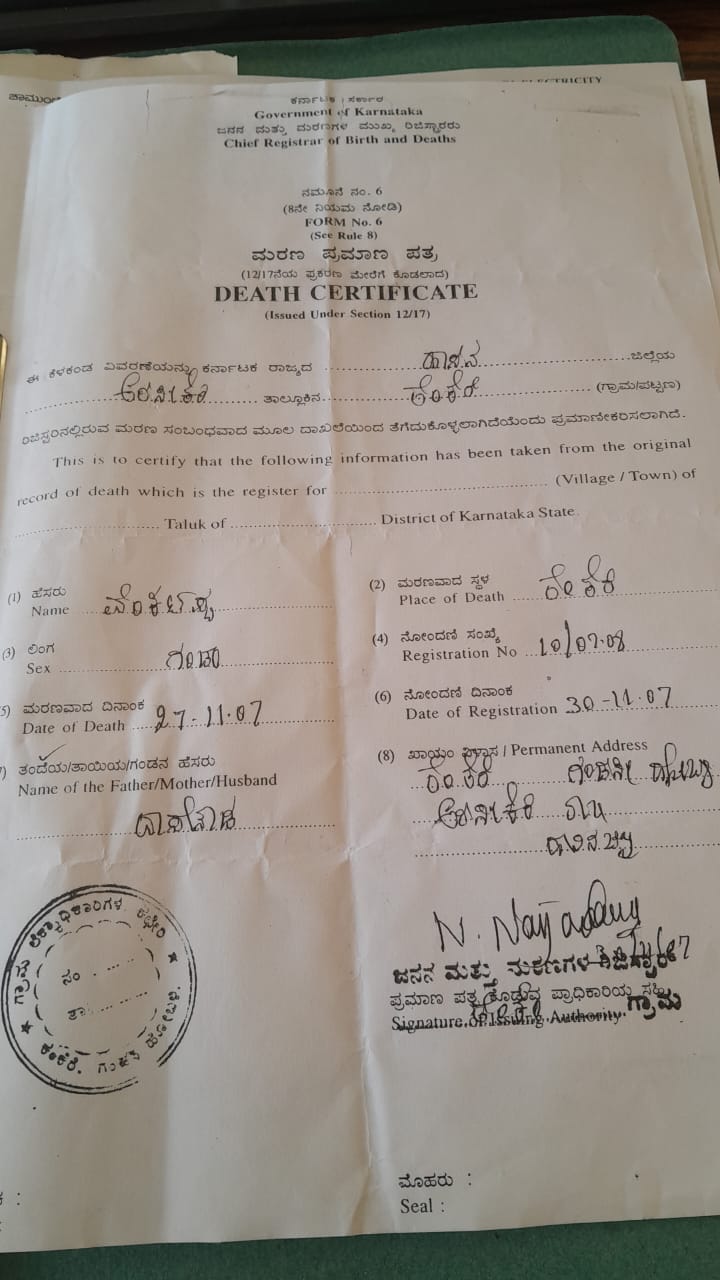 ELECTRICITY
ಚಾಮುಂ
ಕರ್ನಾಟಕ ಸರ್ಕಾರ
Government of Karnataka
ಜನನ ಮತ್ತು ಮರಣಗಳ ಮುಖ್ಯ ರಿಜಿಸ್ಟ್ರಾರರು
Chief Registrar of Birth and Deaths
ನಮೂನೆ ನಂ. 6
(8ನೇ ನಿಯಮ ನೋಡಿ)
FORM No. 6
(See Rule 8)
ಮರಣ ಪ್ರಮಾಣ ಪತ್ರ
(12/17ನೆಯ ಪ್ರಕರಣ ಮೇರೆಗೆ ಕೊಡಲಾದ)
DEATH CERTIFICATE
(Issued Under Section 12/17)
ಈ ಕೆಳಕಂಡ ವಿವರಣೆಯನ್ನು ಕರ್ನಾಟಕ ರಾಜ್ಯದ ಹಾಸನ ಜಿಲ್ಲೆಯ
ಅರಸೀಕೆರೆ ತಾಲ್ಲೂಕಿನ (ಗ್ರಾಮ/ಪಟ್ಟಣ)
ರಿಜಿಸ್ಟರಿನಲ್ಲಿರುವ ಮರಣ ಸಂಬಂಧವಾದ ಮೂಲ ದಾಖಲೆಯಿಂದ ತೆಗೆದುಕೊಳ್ಳಲಾಗಿದೆಯೆಂದು ಪ್ರಮಾಣೀಕರಿಸಲಾಗಿದೆ.
This is to certify that the following information has been taken from the original
record of death which is the register for ........ (Village / Town) of
........ Taluk of ........ District of Karnataka State.
(1) ಹೆಸರು
Name
(2) ಮರಣವಾದ ಸ್ಥಳ
Place of Death
(3) ಲಿಂಗ
Sex ಗಂಡು
(4) ನೋಂದಣಿ ಸಂಖ್ಯೆ
Registration No 10/07-08
5) ಮರಣವಾದ ದಿನಾಂಕ
Date of Death 27-11-07
(6) ನೋಂದಣಿ ದಿನಾಂಕ
Date of Registration 30-11-07
7) ತಂದೆಯ/ತಾಯಿಯ/ಗಂಡನ ಹೆಸರು
Name of the Father/Mother/Husband
(8) ಖಾಯಂ ವಿಳಾಸ / Permanent Address
ಗಂಡಸಿ ಹೋಬ್ಳಿ
ಅರಸೀಕೆರೆ ತಾಃ
ಹಾಸನ ಜಿಲ್ಲೆ
ಗ್ರಾಮ ಲೆಕ್ಕಾಧಿಕಾರಿಗಳ ಕಛೇರಿ
ನಂ.
ತಾ:
ಜನನ ಮತ್ತು ಮರಣಗಳ ರಿಜಿಸ್ಟ್ರಾರ್
ಪ್ರಮಾಣ ಪತ್ರ ಕೊಡುವ ಪ್ರಾಧಿಕಾರಿಯ ಸಹಿ
Signature of Issuing Authority ಗ್ರಾಮ
ಮೊಹರು :
Seal :